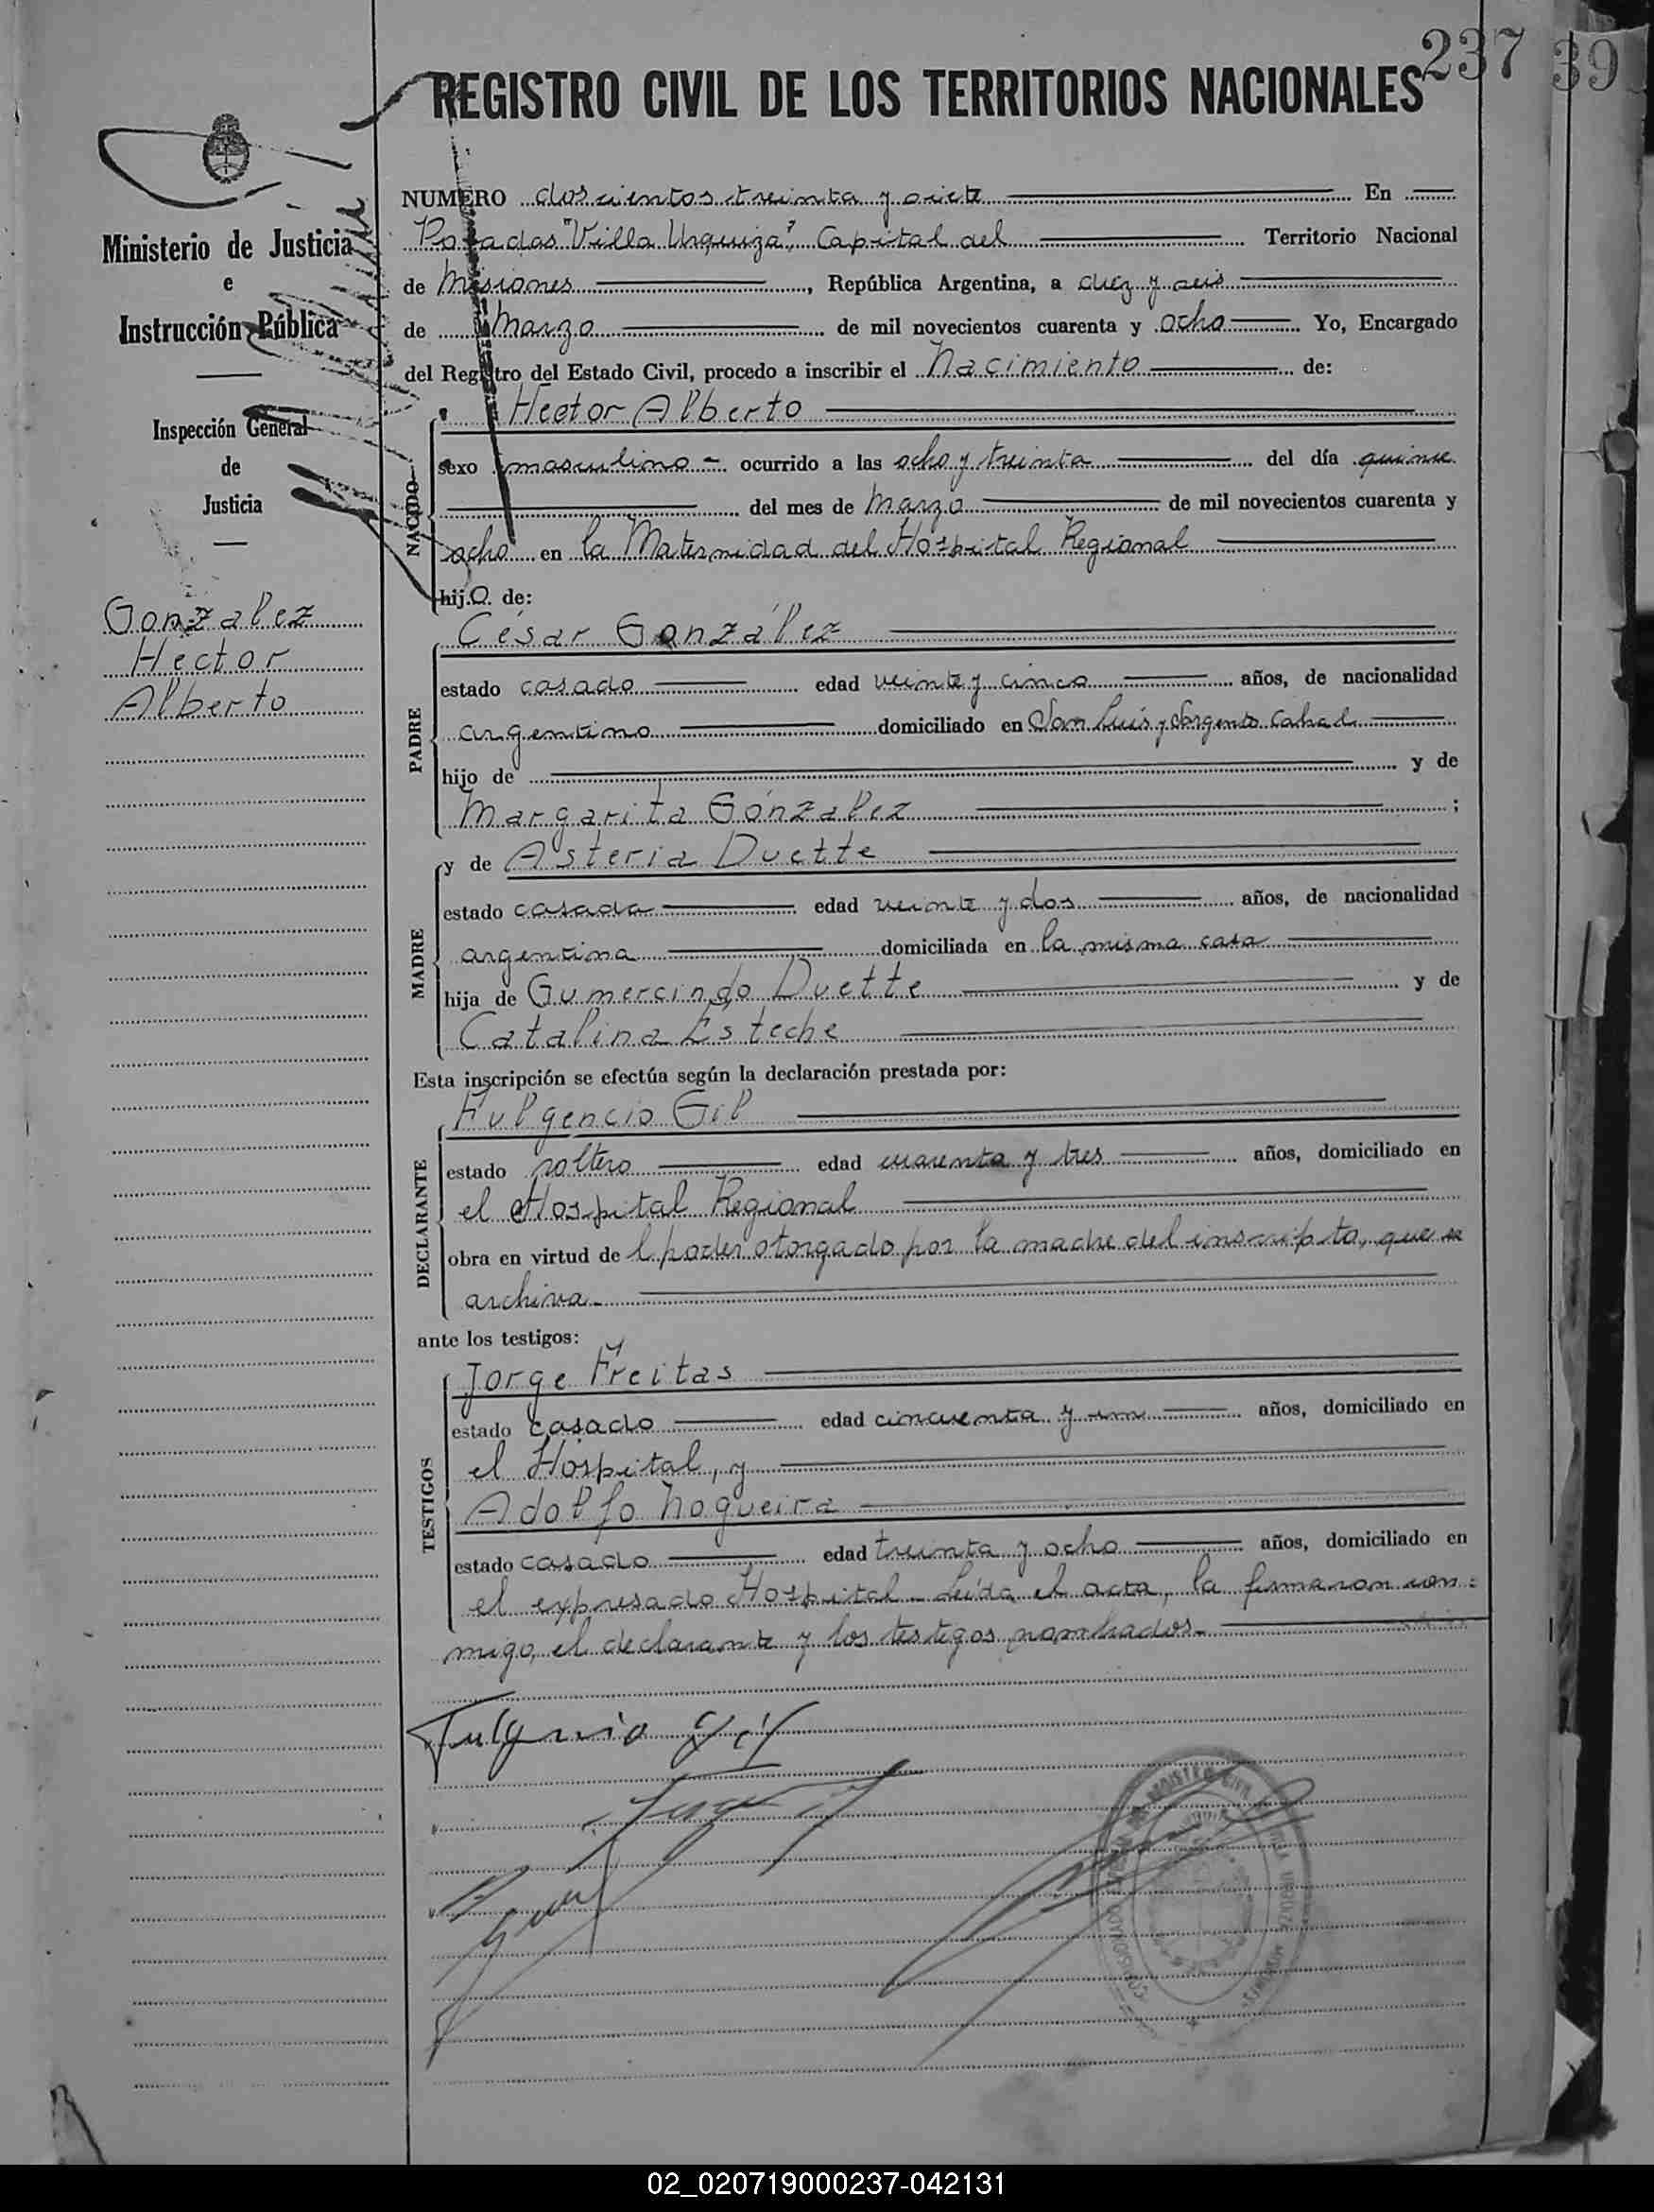 237 39
REGISTRO CIVIL DE LOS TERRITORIOS NACIONALES
Ministerio de Justicia
e
Instrucción Pública
Inspección General
de
Justicia
Gonzalez
Hector
Alberto
NUMERO doscientos treinta y siete En
Posadas "Villa Urquiza", Capital del Territorio Nacional
de Misiones, República Argentina, a diez y seis
de Marzo de mil novecientos cuarenta y ocho Yo, Encargado
del Registro del Estado Civil, procedo a inscribir el Nacimiento de:
Hector Alberto
NACIDO
sexo masculino - ocurrido a las ocho y treinta del día quince
del mes de Marzo de mil novecientos cuarenta y
ocho en la Maternidad del Hospital Regional
hijo de:
César González
PADRE
estado casado edad veinte y cinco años, de nacionalidad
argentino domiciliado en San Luis y Sargento Cabral
hijo de y de
Margarita Gónzalez ;
y de Asteria Duette
MADRE
estado casada edad veinte y dos años, de nacionalidad
argentina domiciliada en la misma casa
hija de Gumercindo Duette y de
Catalina Esteche
Esta inscripción se efectúa según la declaración prestada por:
Fulgencio Gil
DECLARANTE
estado soltero edad cuarenta y tres años, domiciliado en
el Hospital Regional
obra en virtud de l poder otorgado por la madre del inscripto, que se
archiva.-
ante los testigos:
Jorge Freitas
TESTIGOS
estado casado edad cincuenta y un años, domiciliado en
el Hospital, y
Adolfo Nogueira
estado casado edad treinta y ocho años, domiciliado en
el expresado Hospital.- Leída el acta, la firmaron con=
migo, el declarante y los testigos nombrados.-
Fulgencio Gil
02_020719000237-042131